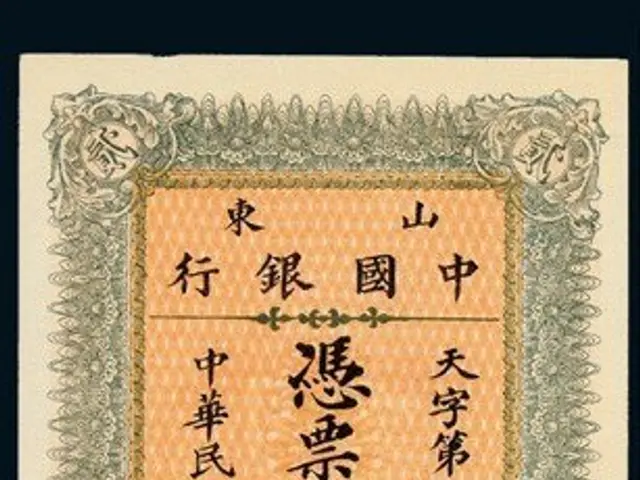 貳
貳
山東
中國銀行
天字第
憑票
中華民